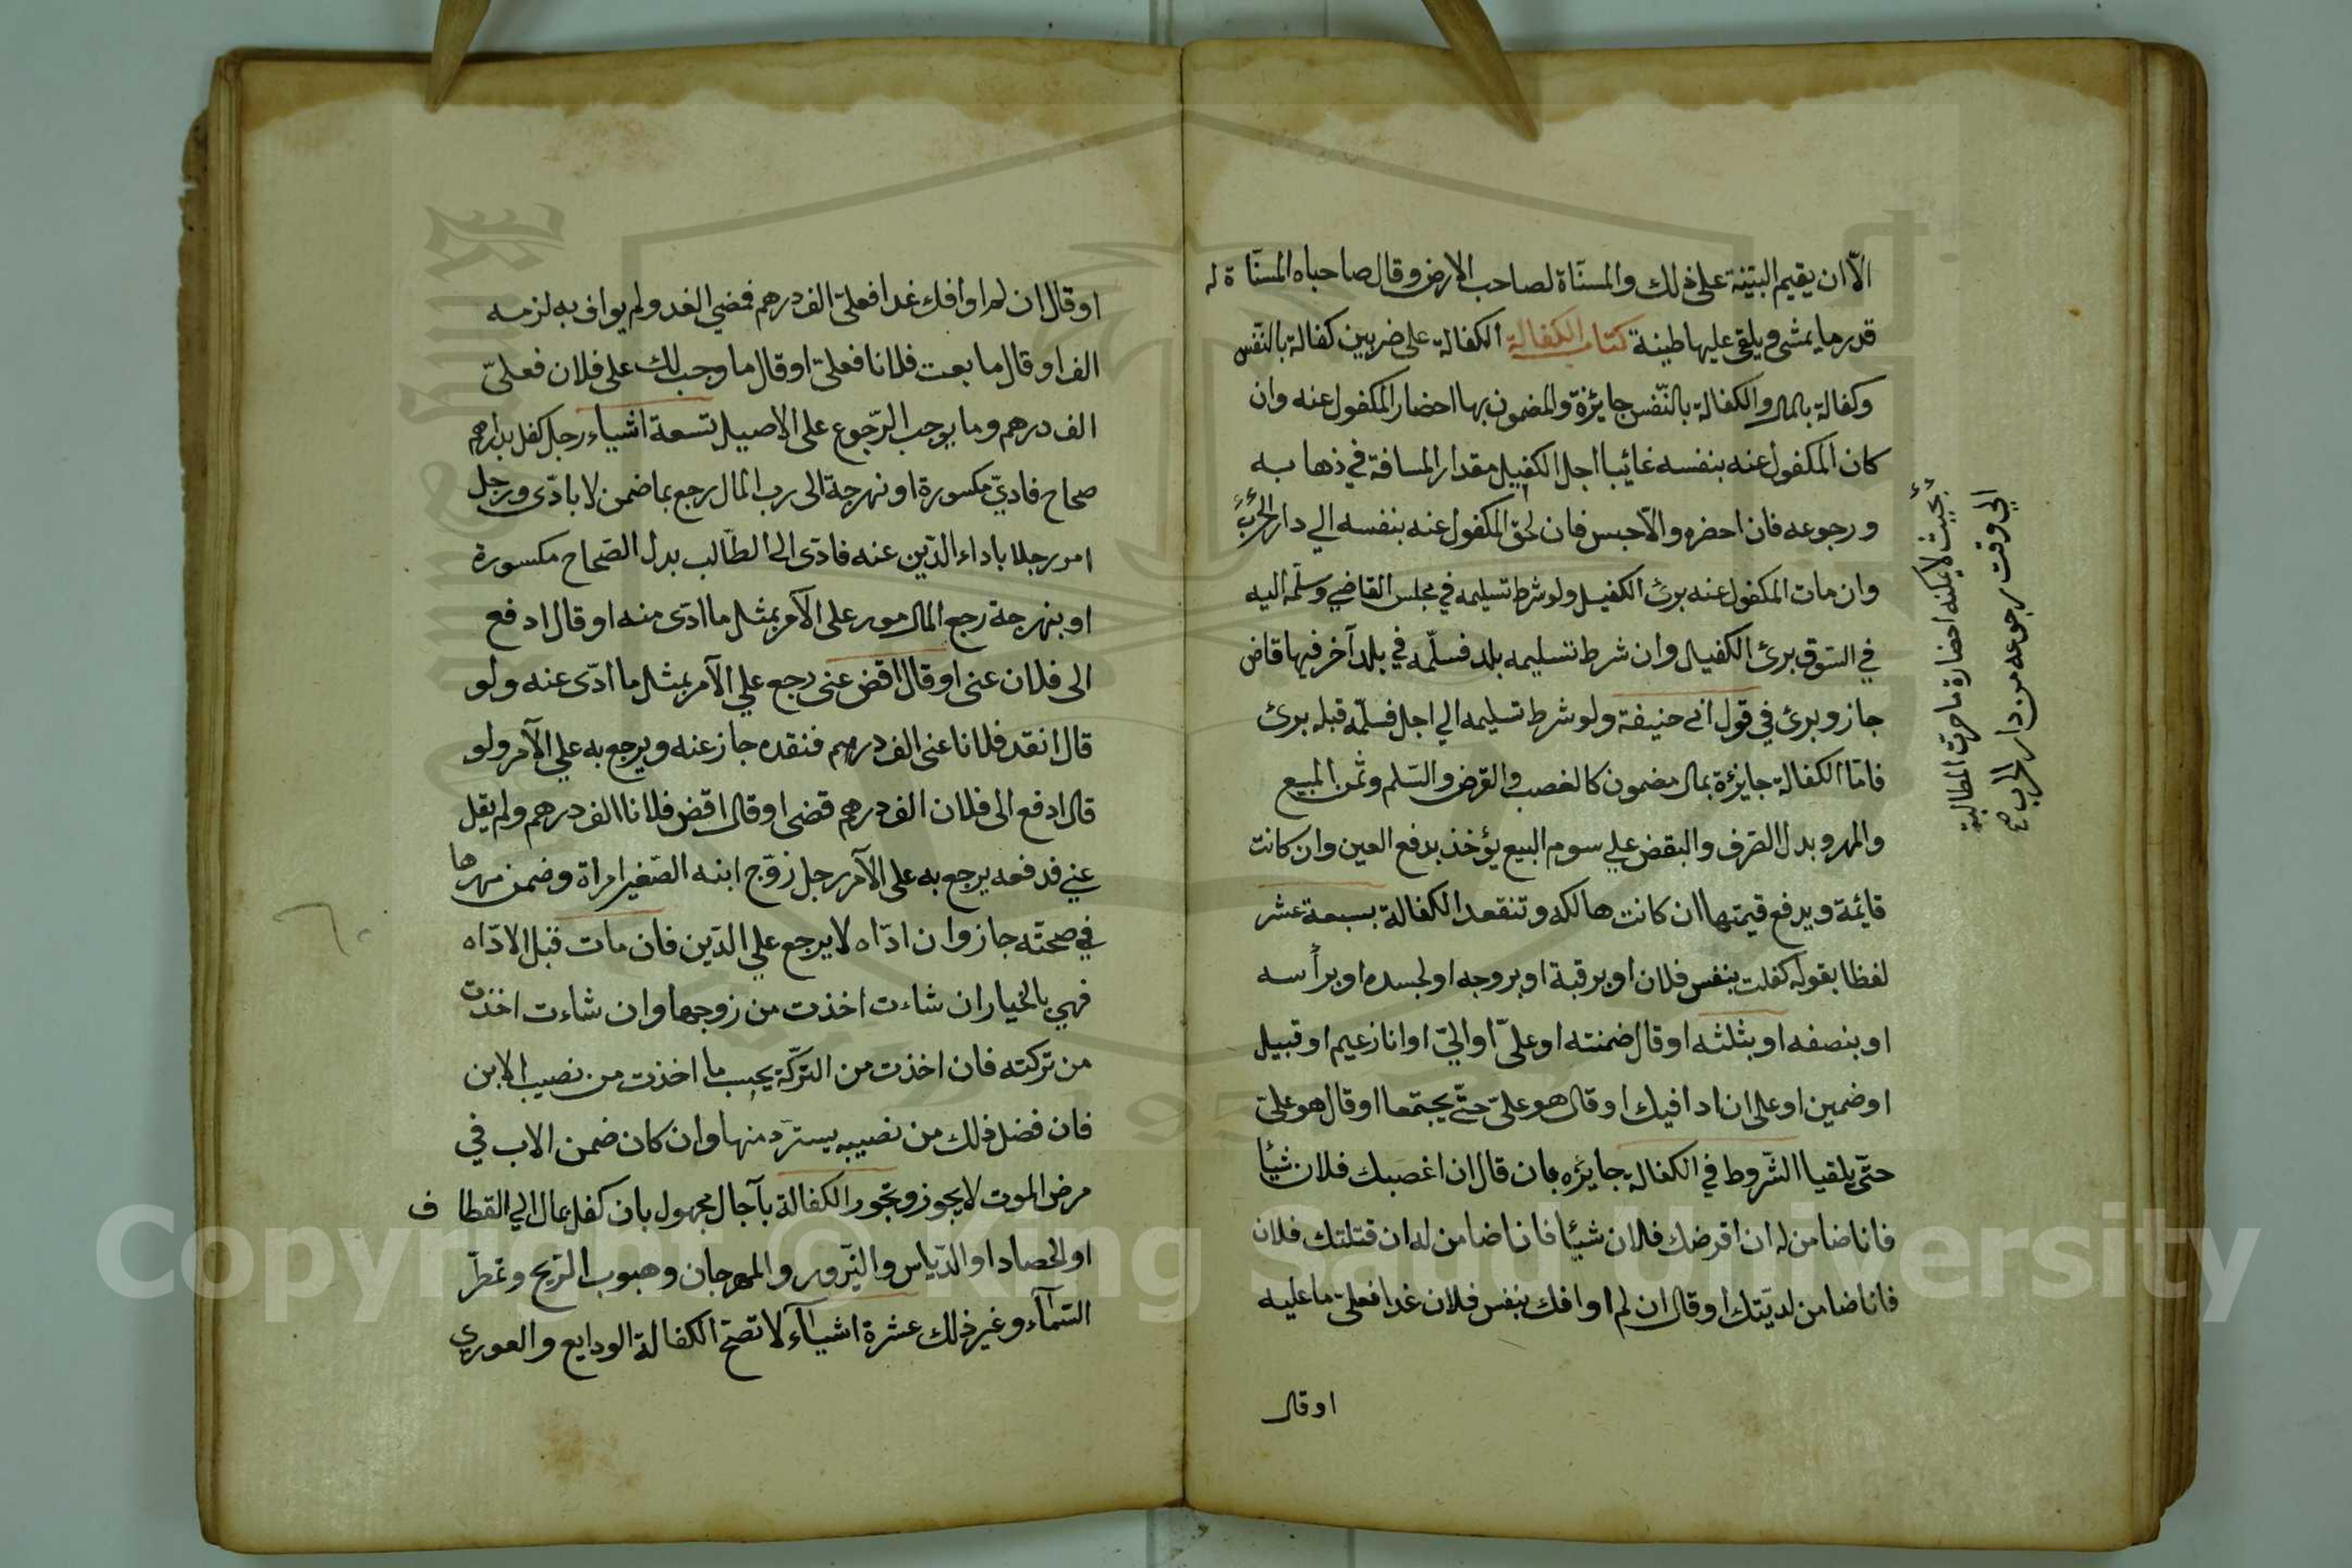 الّا ان يقيم البيّنة على ذلك والمسنّاة لصاحب الارض وقال صاحباه المسنّاة له
قدر ما يمشى ويلقى عليها طينة كتاب الكفالة الكفالة على ضربين كفالة بالنّفس
وكفالة بالمال والكفالة بالنّفس جايزة والمضمون بها احضار المكفول عنه وان
كان المكفول عنه بنفسه غائبا اجل الكفيل مقدار المسافة في ذهابه
ورجوعه فان احضره والّا حبس فان لحق المكفول عنه بنفسه الي دار الحرب
وان مات المكفول عنه برئ الكفيل ولو شرط تسليمه في مجلس القاضي وسلّمه اليه
في السّوق برئ الكفيل وان شرط تسليمه بلد فسلّمه في بلد آخر فيها قاض
جاز وبرئ في قول ابى حنيفة ولو شرط تسليمه الي اجل فسلّمه قبله برئ
فامّا الكفالة جايزة بمال مضمون كالغصب والقرض والسّلم وثمن المبيع
والمهر وبدل الصّرف والبقض علي سوم البيع يؤخذ بدفع العين وان كانت
قايمة ويدفع قيمتها ان كانت هالكه وتنقعد الكفالة بسبعة عشر
لفظا بقوله كفلت بنفس فلان او برقبة او بروجه او لجسده او برأسه
او بنصفه او بثلثه او قال ضمنته او علىّ او اليّ او انا زعيم او قبيل
او ضمين او على ان ادافيك او قال هو علىّ حتّى يجتمعا او قال هو علىّ
حتّى يلقيا الشّروط في الكفالة جايزه بان قال ان اغصبك فلان شيأ
فانا ضامن له ان اقرضك فلان شيئا فانا ضامن له ان قتلتك فلان
فانا ضامن لديّتك او قال ان لم اوافك بنفس فلان غدا فعلىّ ما عليه
او قال
بحيث لا يمكنه احضاره ما خرت المطالبة
الي وقت رجوعه من دار الحرب صح
او قال ان لم اوافك غدا فعلىّ الف درهم فمضي الغد ولم يواف به لزمه
الف او قال ما بعت فلانا فعلىّ او قال ما وجب لك على فلان فعلىّ
الف درهم وما يوجب الرّجوع على الاصيل تسعة اشياء رجل كفل بدراهم
صحاح فاديّ مكسورة او نهرجة الى رب المال رجع بما ضمن لا بادّى ورجل
امر رجلا باداء الدّين عنه فادى الى الطّالب بدل الصّحاح مكسورة
او بنهرجة رجع المال مور على الآمر بمثل ما ادى منه او قال ادفع
الى فلان عنى او قال اقض عنى رجع علي الآمر بمثل ما ادّى عنه ولو
قال انقد فلانا عنى الف درهم فنقده جاز عنه ويرجع به علي الآمر ولو
قال ادفع الى فلان الف درهم قضى او قال اقض فلانا الف درهم ولم يقل
عني فدفعه يرجع به على الآمر رجل زوّج ابنه الصّغير امراة وضمن مهرها
في صحّته جاز وان ادّاه لا يرجع علي الدّين فان مات قبل الادّاه
فهي بالخيار ان شاءت اخذت من زوجها وان شاءت اخذت
من تركته فان اخذت من التركّة يحسب ما اخذت من نصيب الابن
فان فضل ذلك من نصيبه يستردّ منها وان كان ضمن الاب في
مرض الموت لا يجوز وتجوز الكفالة بآجال مجهول بان كفل بمال الي القطاف
او الحصاد او الدّياس والنّيرور والمهرجان وهبوب الرّيح وتمطرّ
السّمآء وغير ذلك عشرة اشيآء لا تصحّ الكفالة الودايع والعوري
Copyright © King Saud University